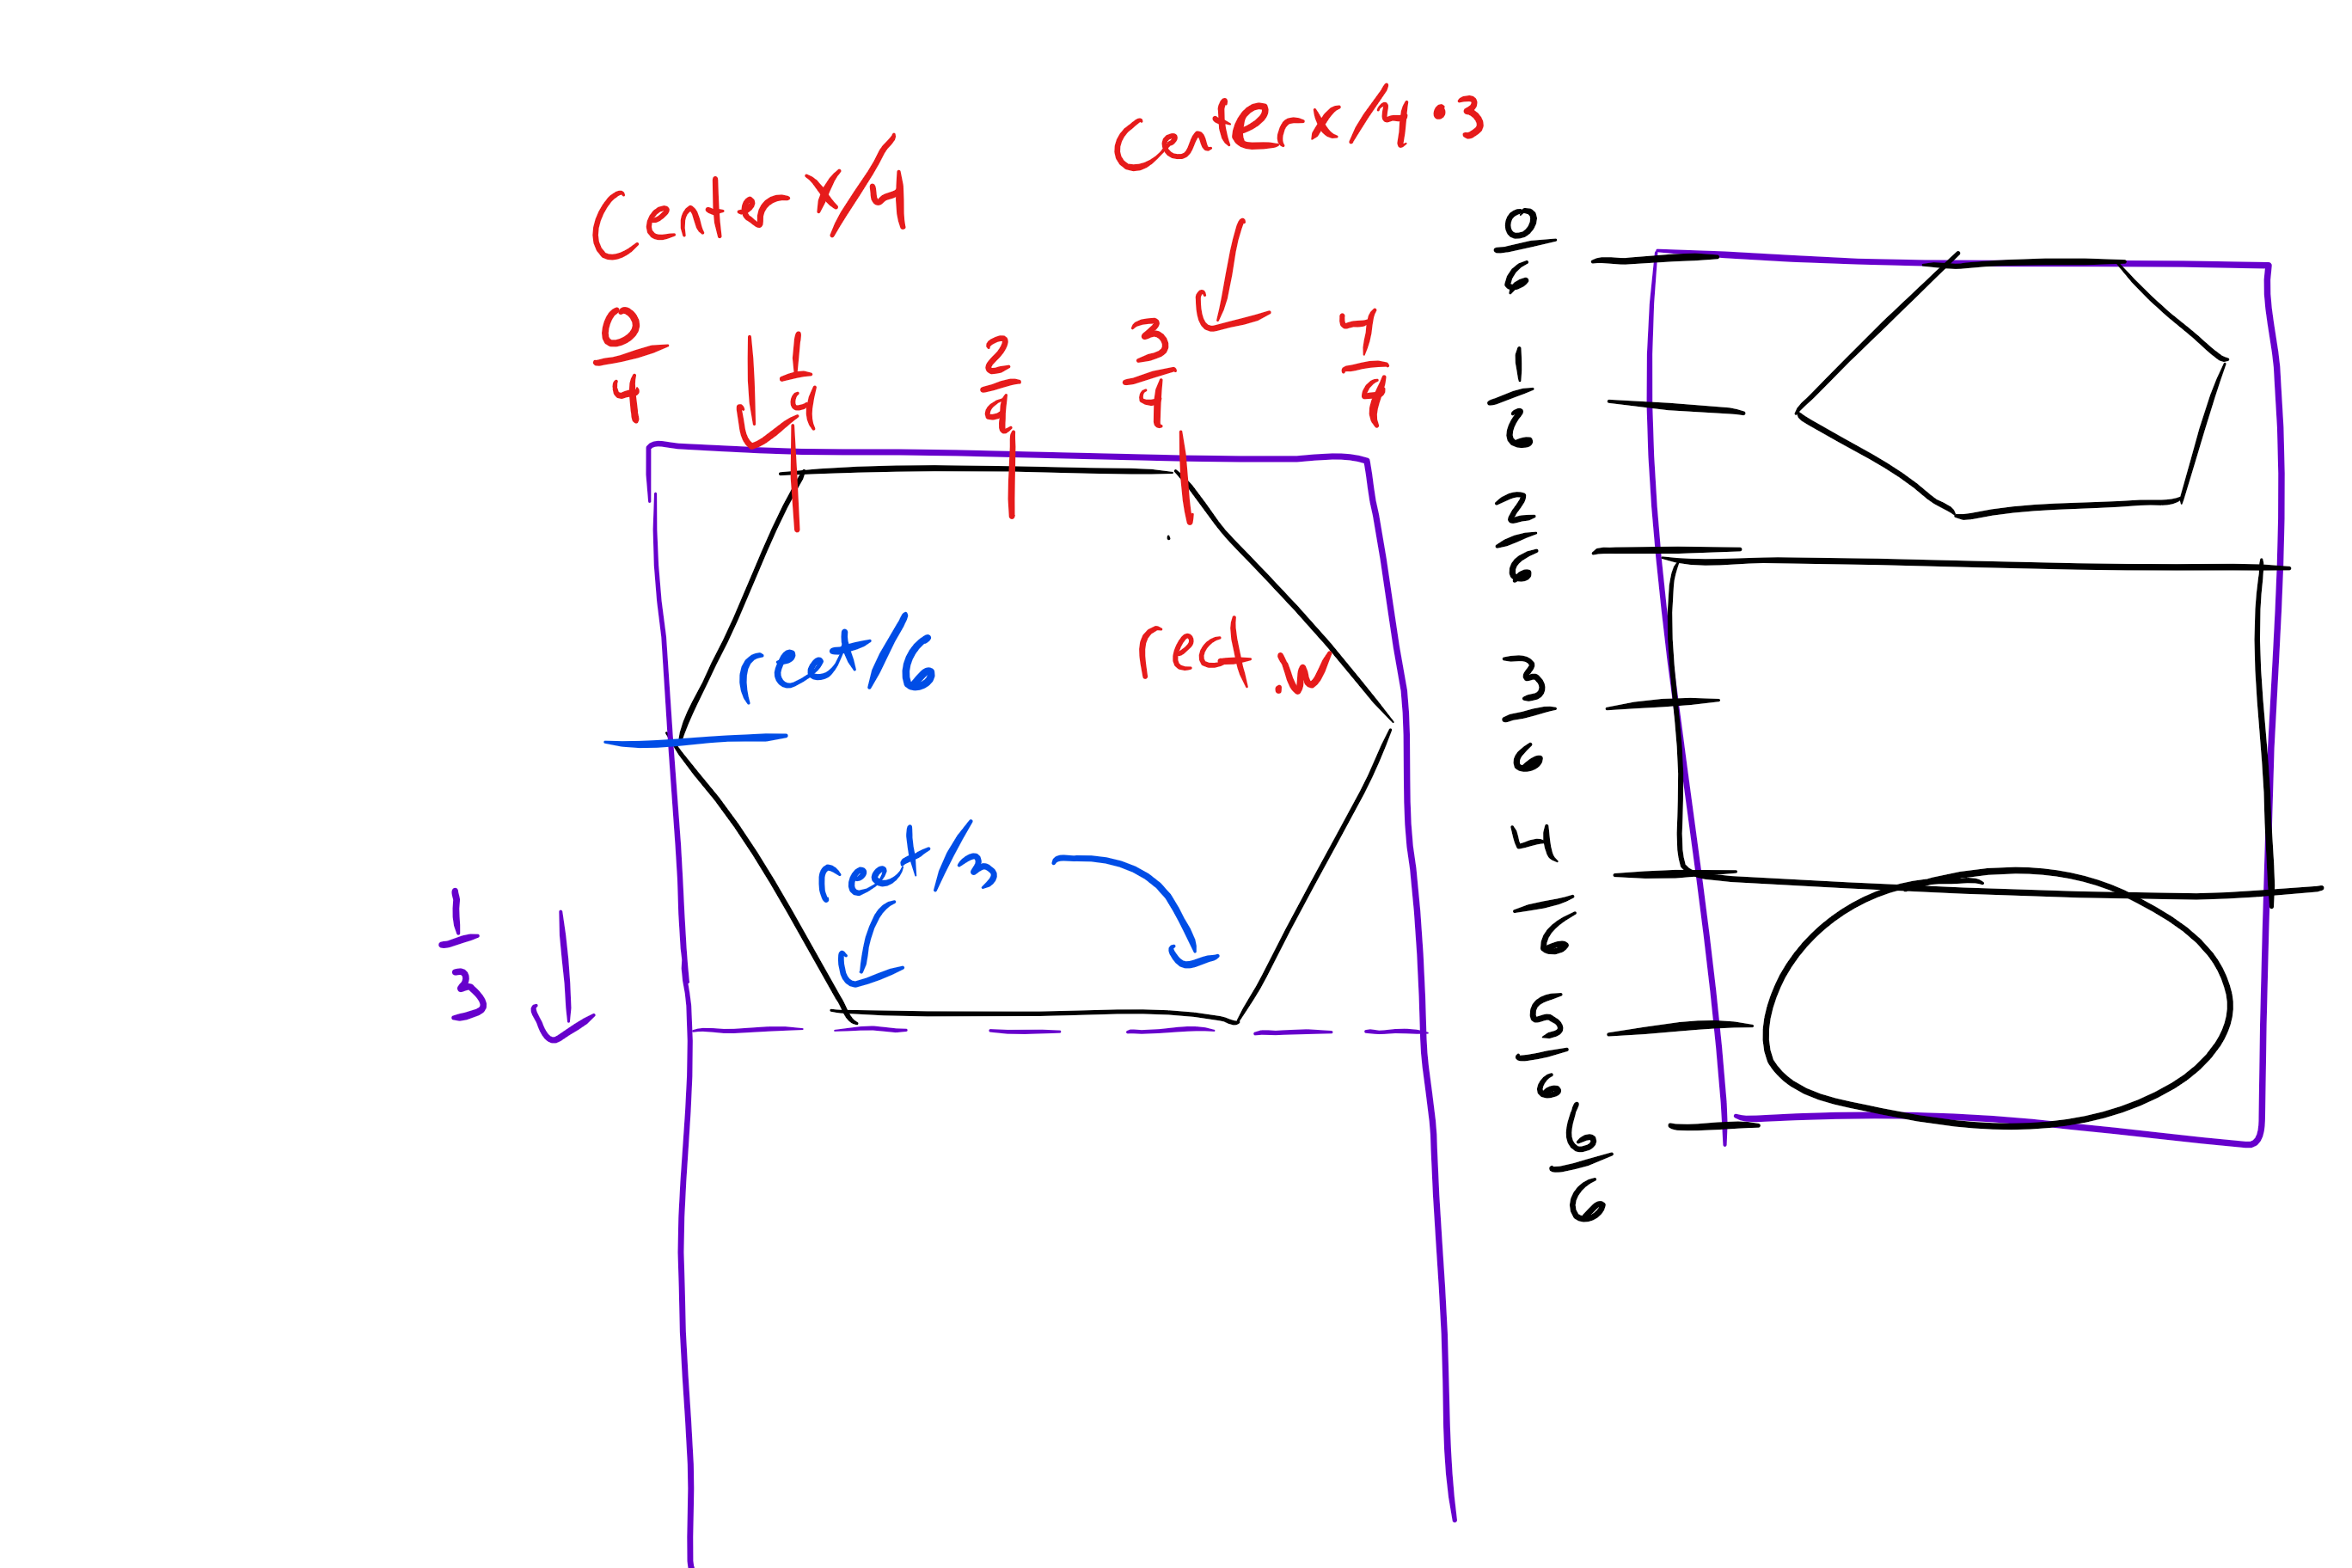 Center x/4
Center x/4 · 3
0/4
1/4
2/4
3/4
4/4
rect/6
rect.w
rect/3
1/3
0/6
1/2
2/6
3/6
4/6
5/6
6/6